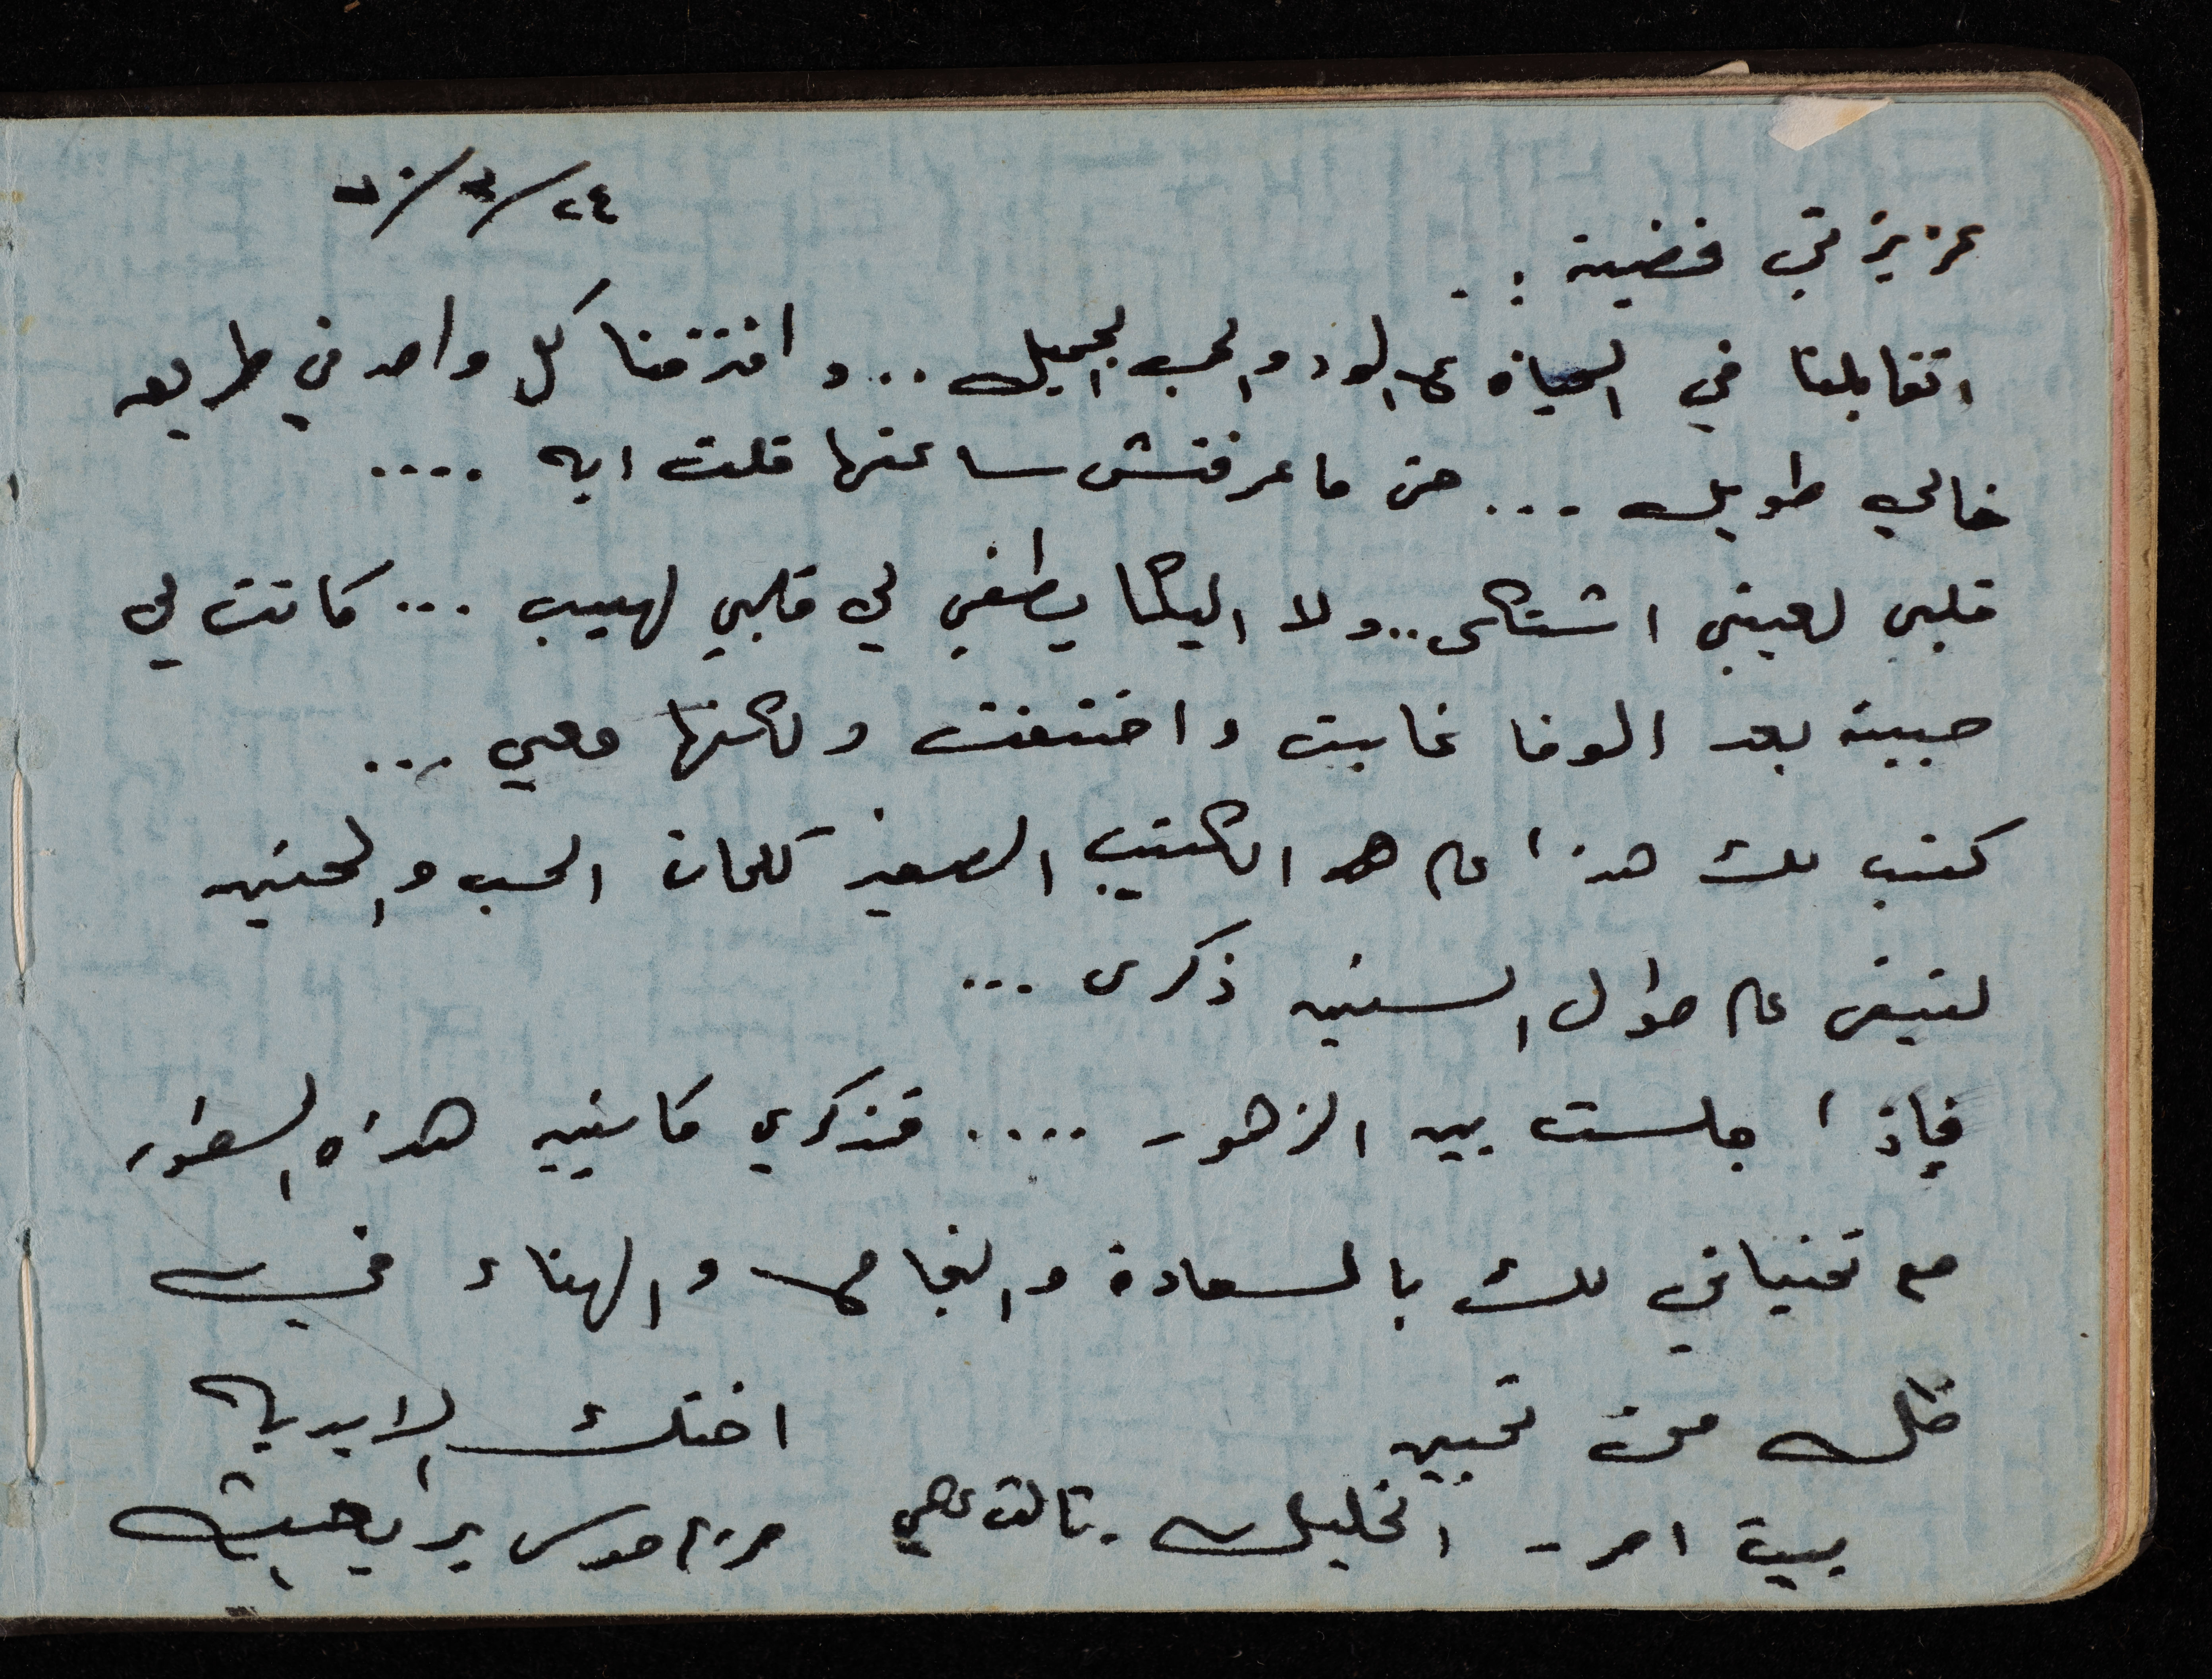 ٢٤/٣/٦٠
عزيزتي فضية :ـ
اتقابلنا في الحياة على الود والحب الجميل ... وافترقنا كل واحد في طريق
خالي طويل .... حتى ما عرفتش ساعتها قلت ايه ....
قلبي لعيني اشتكى .. ولا البكا يطفي لي قلبي لهيب ... كانت لي
حبيبة بعد الوفا غابت واختفت ولكنها معي ...
كتبت لك هذا على هذا الكتيب الصغير كلمات الحب والحنين
لتبقى على طوال السنين ذكرى ...
فإذا جلست بين الزهور .... فتذكري كاتبة هذه السطور
مع تمنياتي لك بالسعادة والنجاح والهناء في
ظل من تحبين
اختك الابدية
بيت امر - الخليل . ثالث علمي
مريم موسى بريغيث